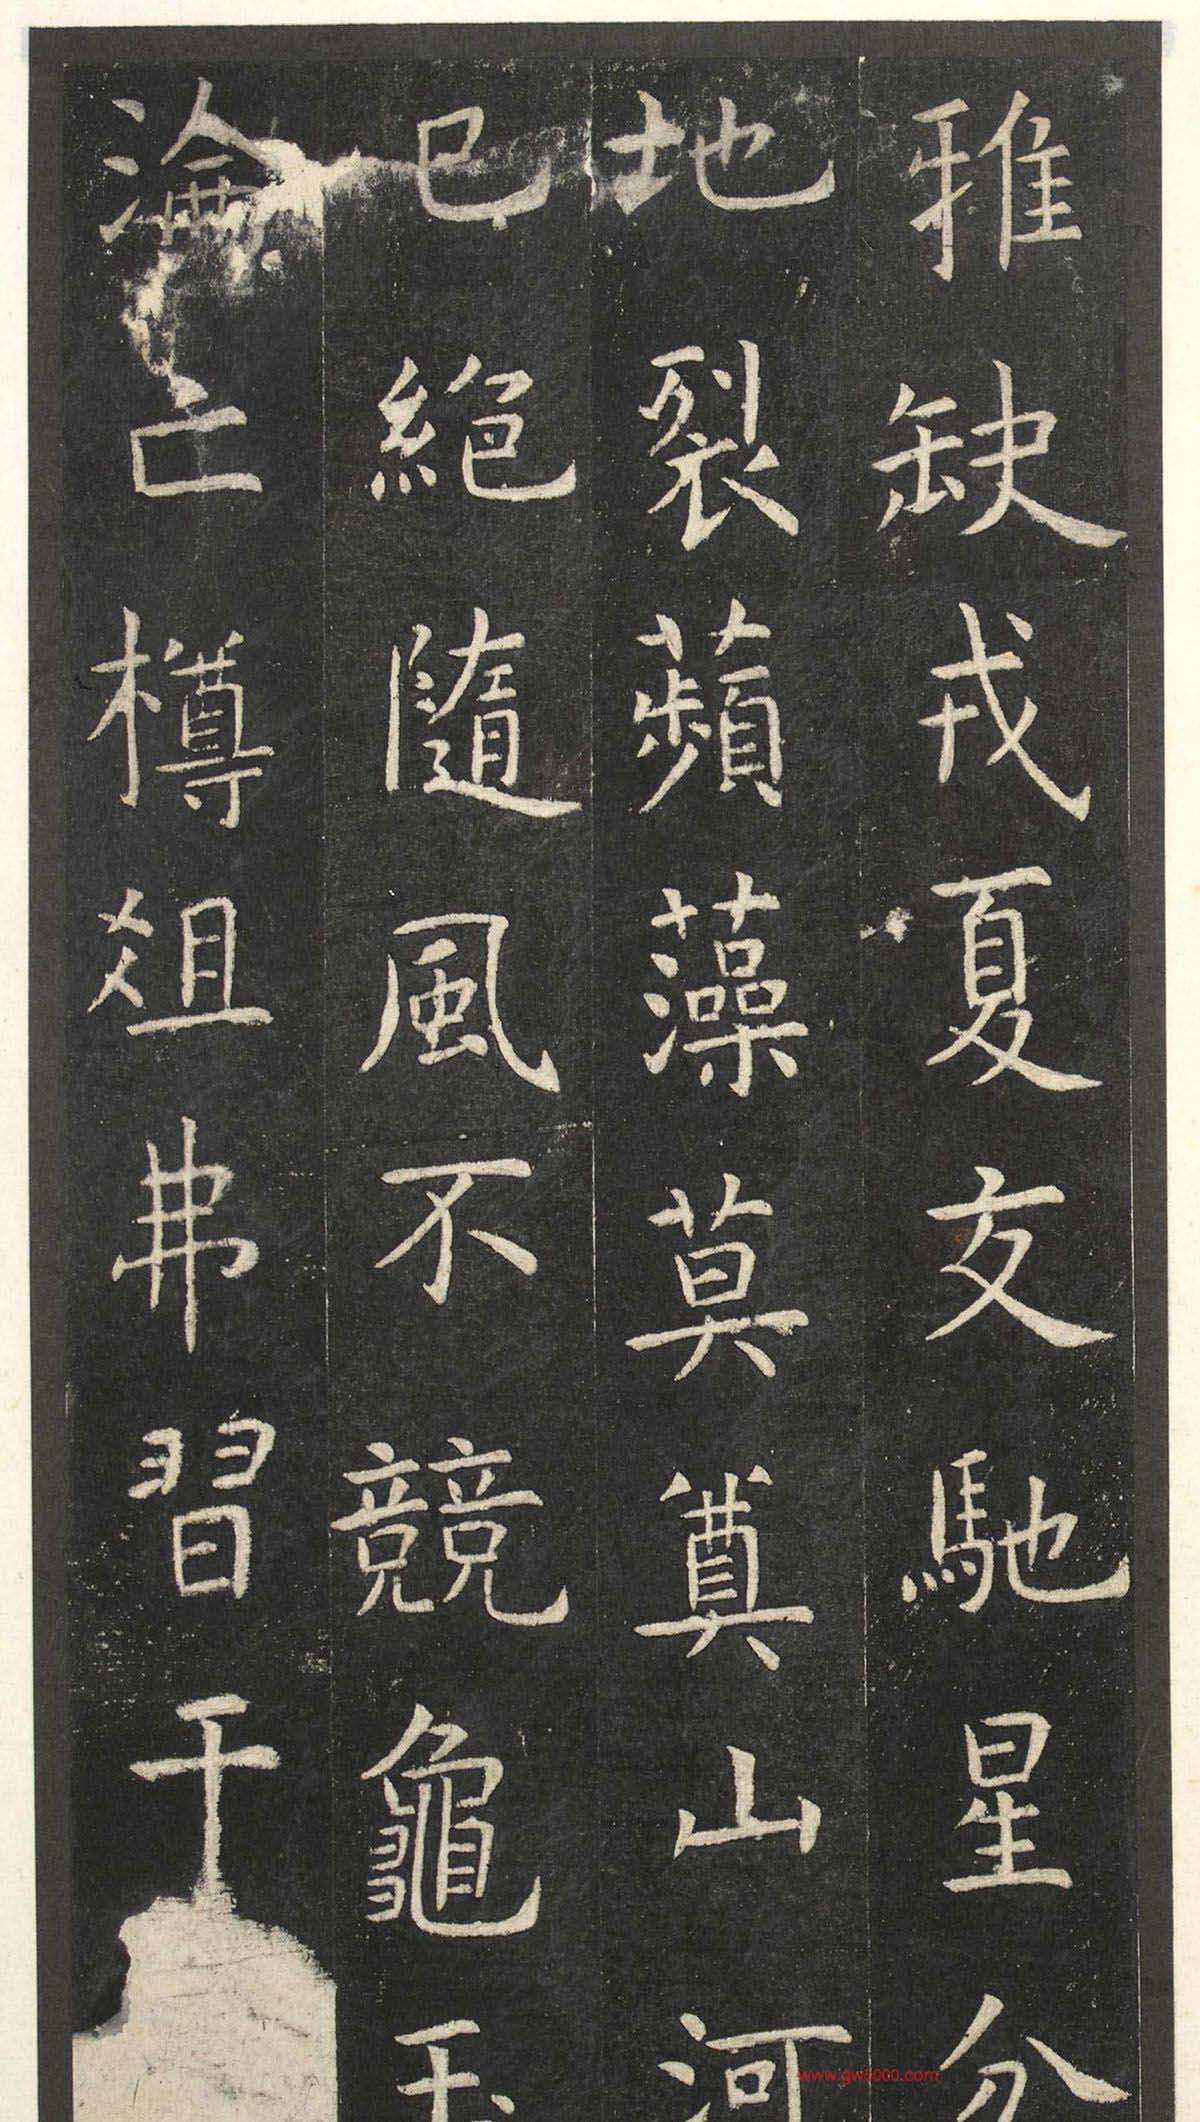 雅缺戎夏交馳星分
地裂蘋藻莫奠山河
已絕隨風不競龜玉
淪亡樽俎弗習干
www.gw5000.com